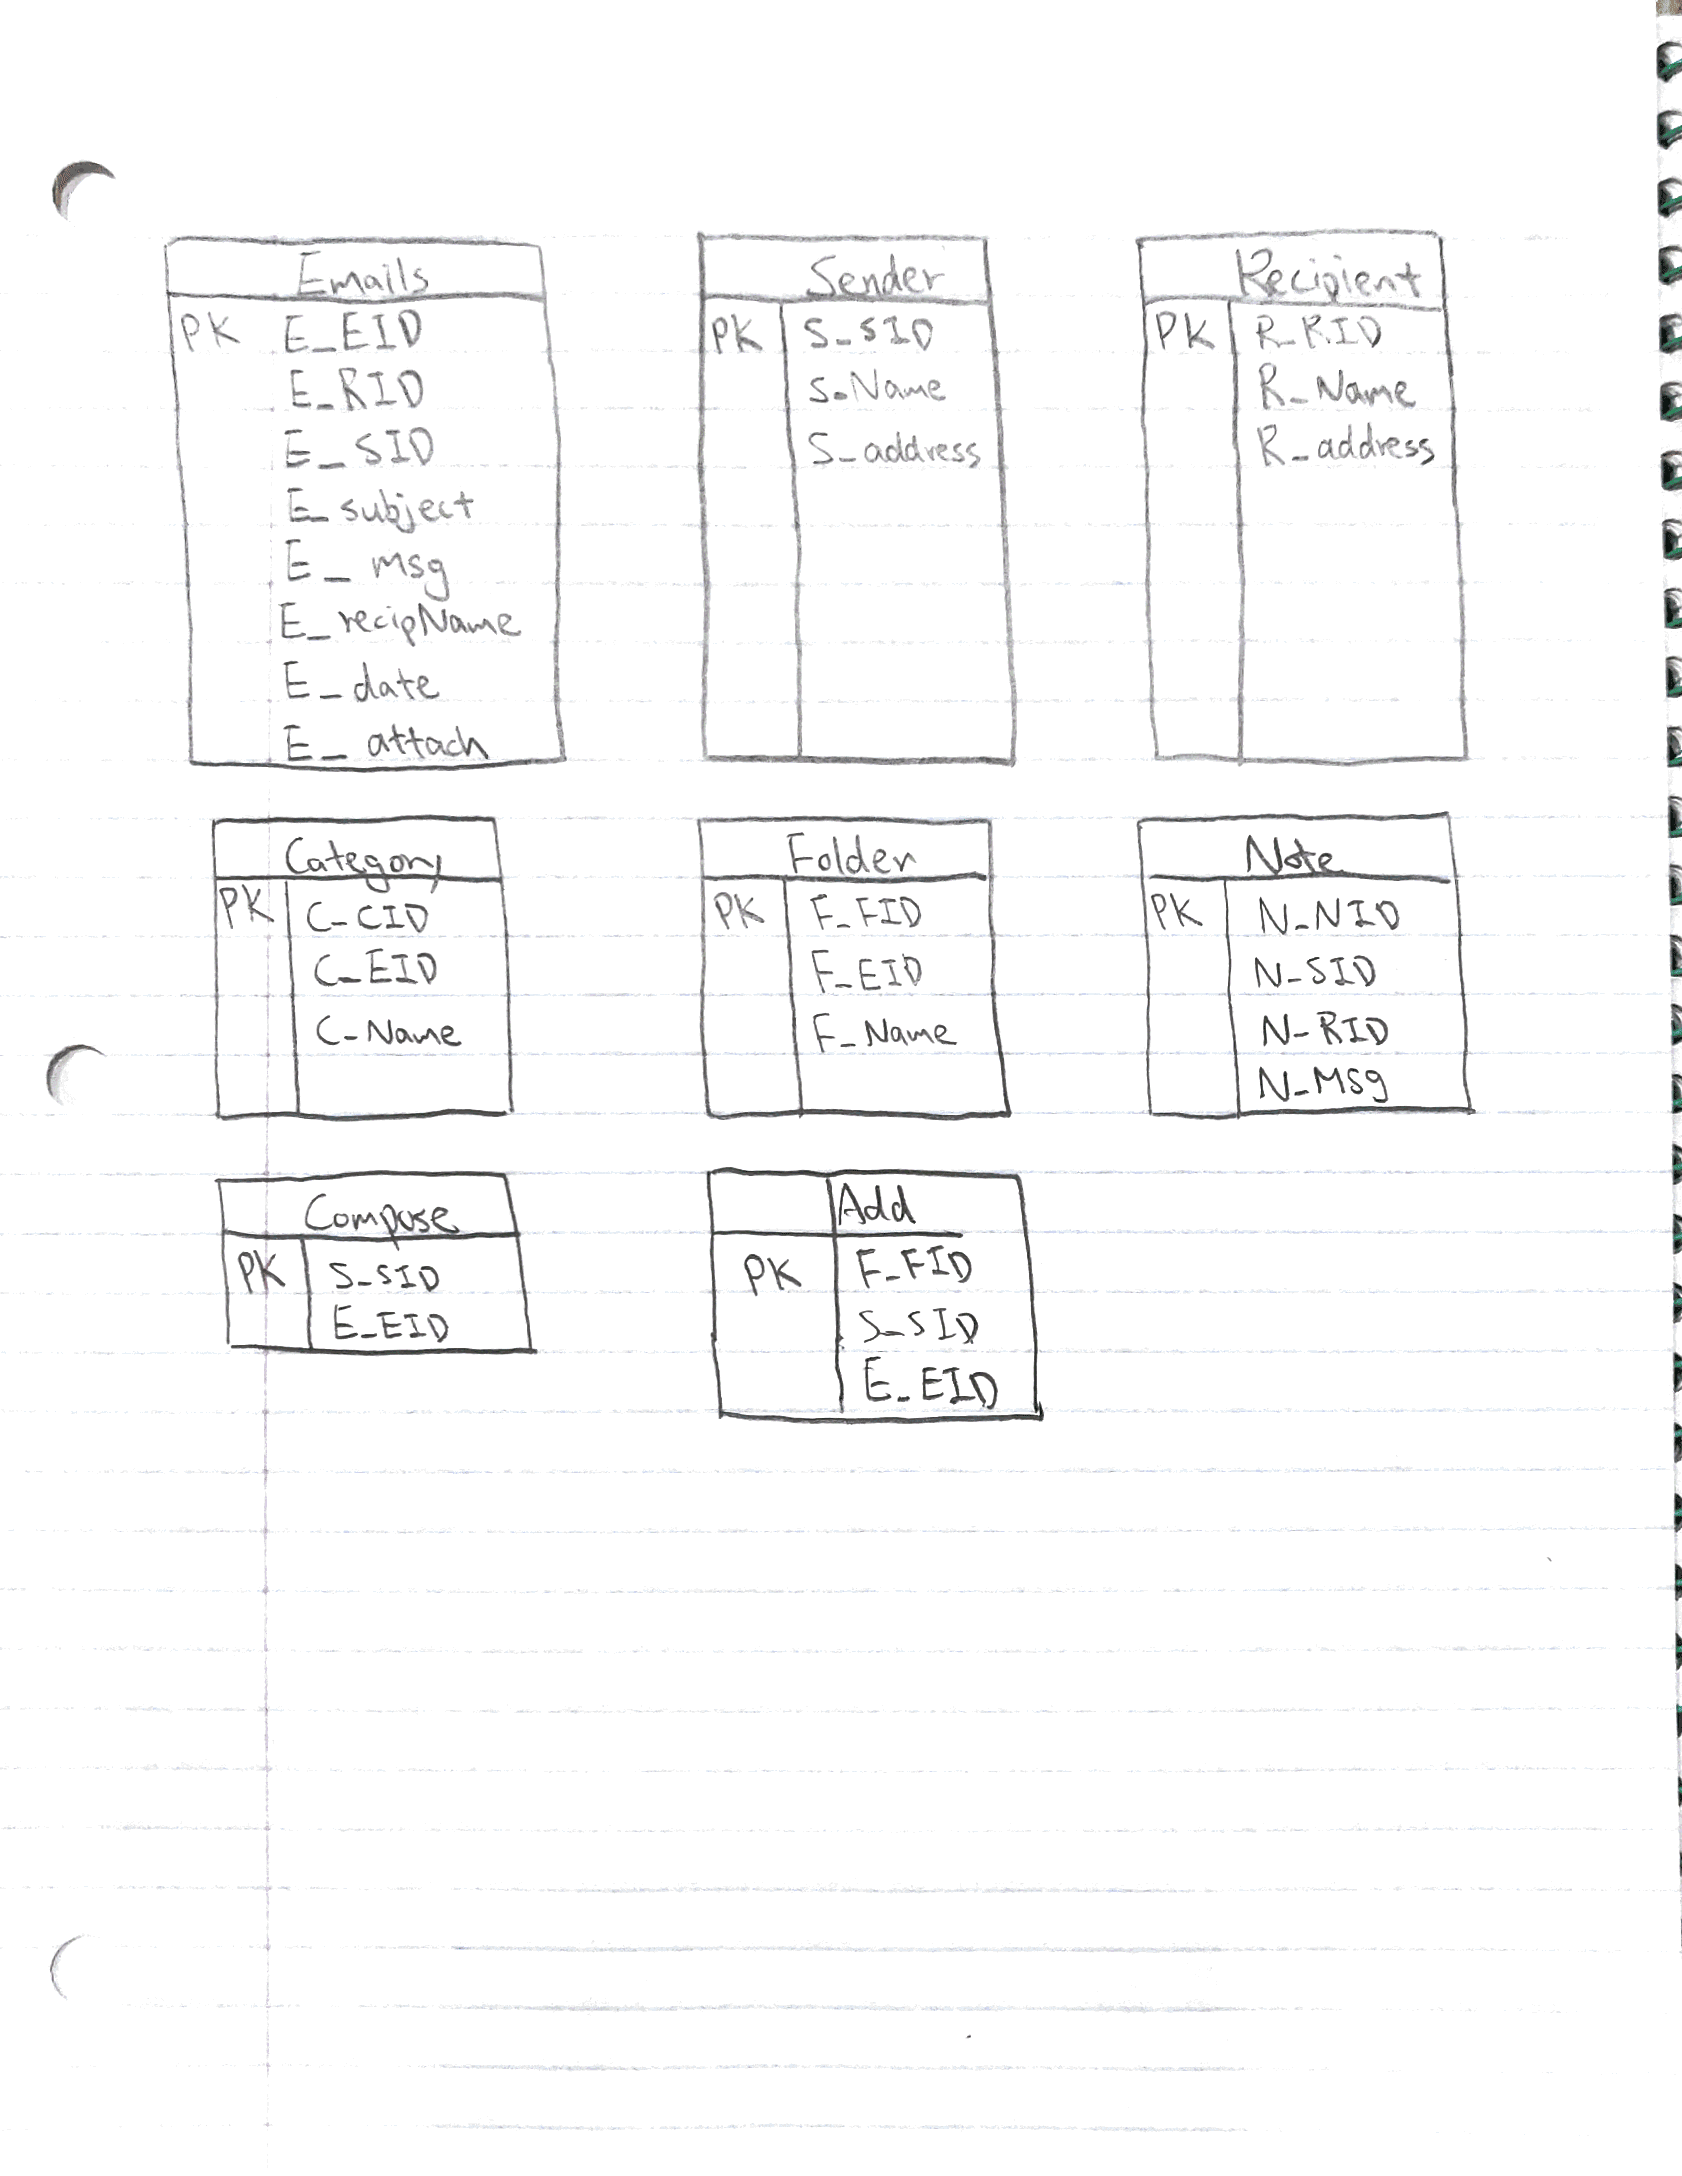 Emails
PK E_EID
E_RID
E_SID
E_subject
E_msg
E_recipName
E_date
E_attach
Sender
PK S_SID
S_Name
S_address
Recipient
PK R_RID
R_Name
R_address
Category
PK C_CID
C_EID
C_Name
Folder
PK F_FID
F_EID
F_Name
Note
PK N_NID
N_SID
N_RID
N_MSg
Compose
PK S_SID
E_EID
Add
PK F_FID
S_SID
E_EID